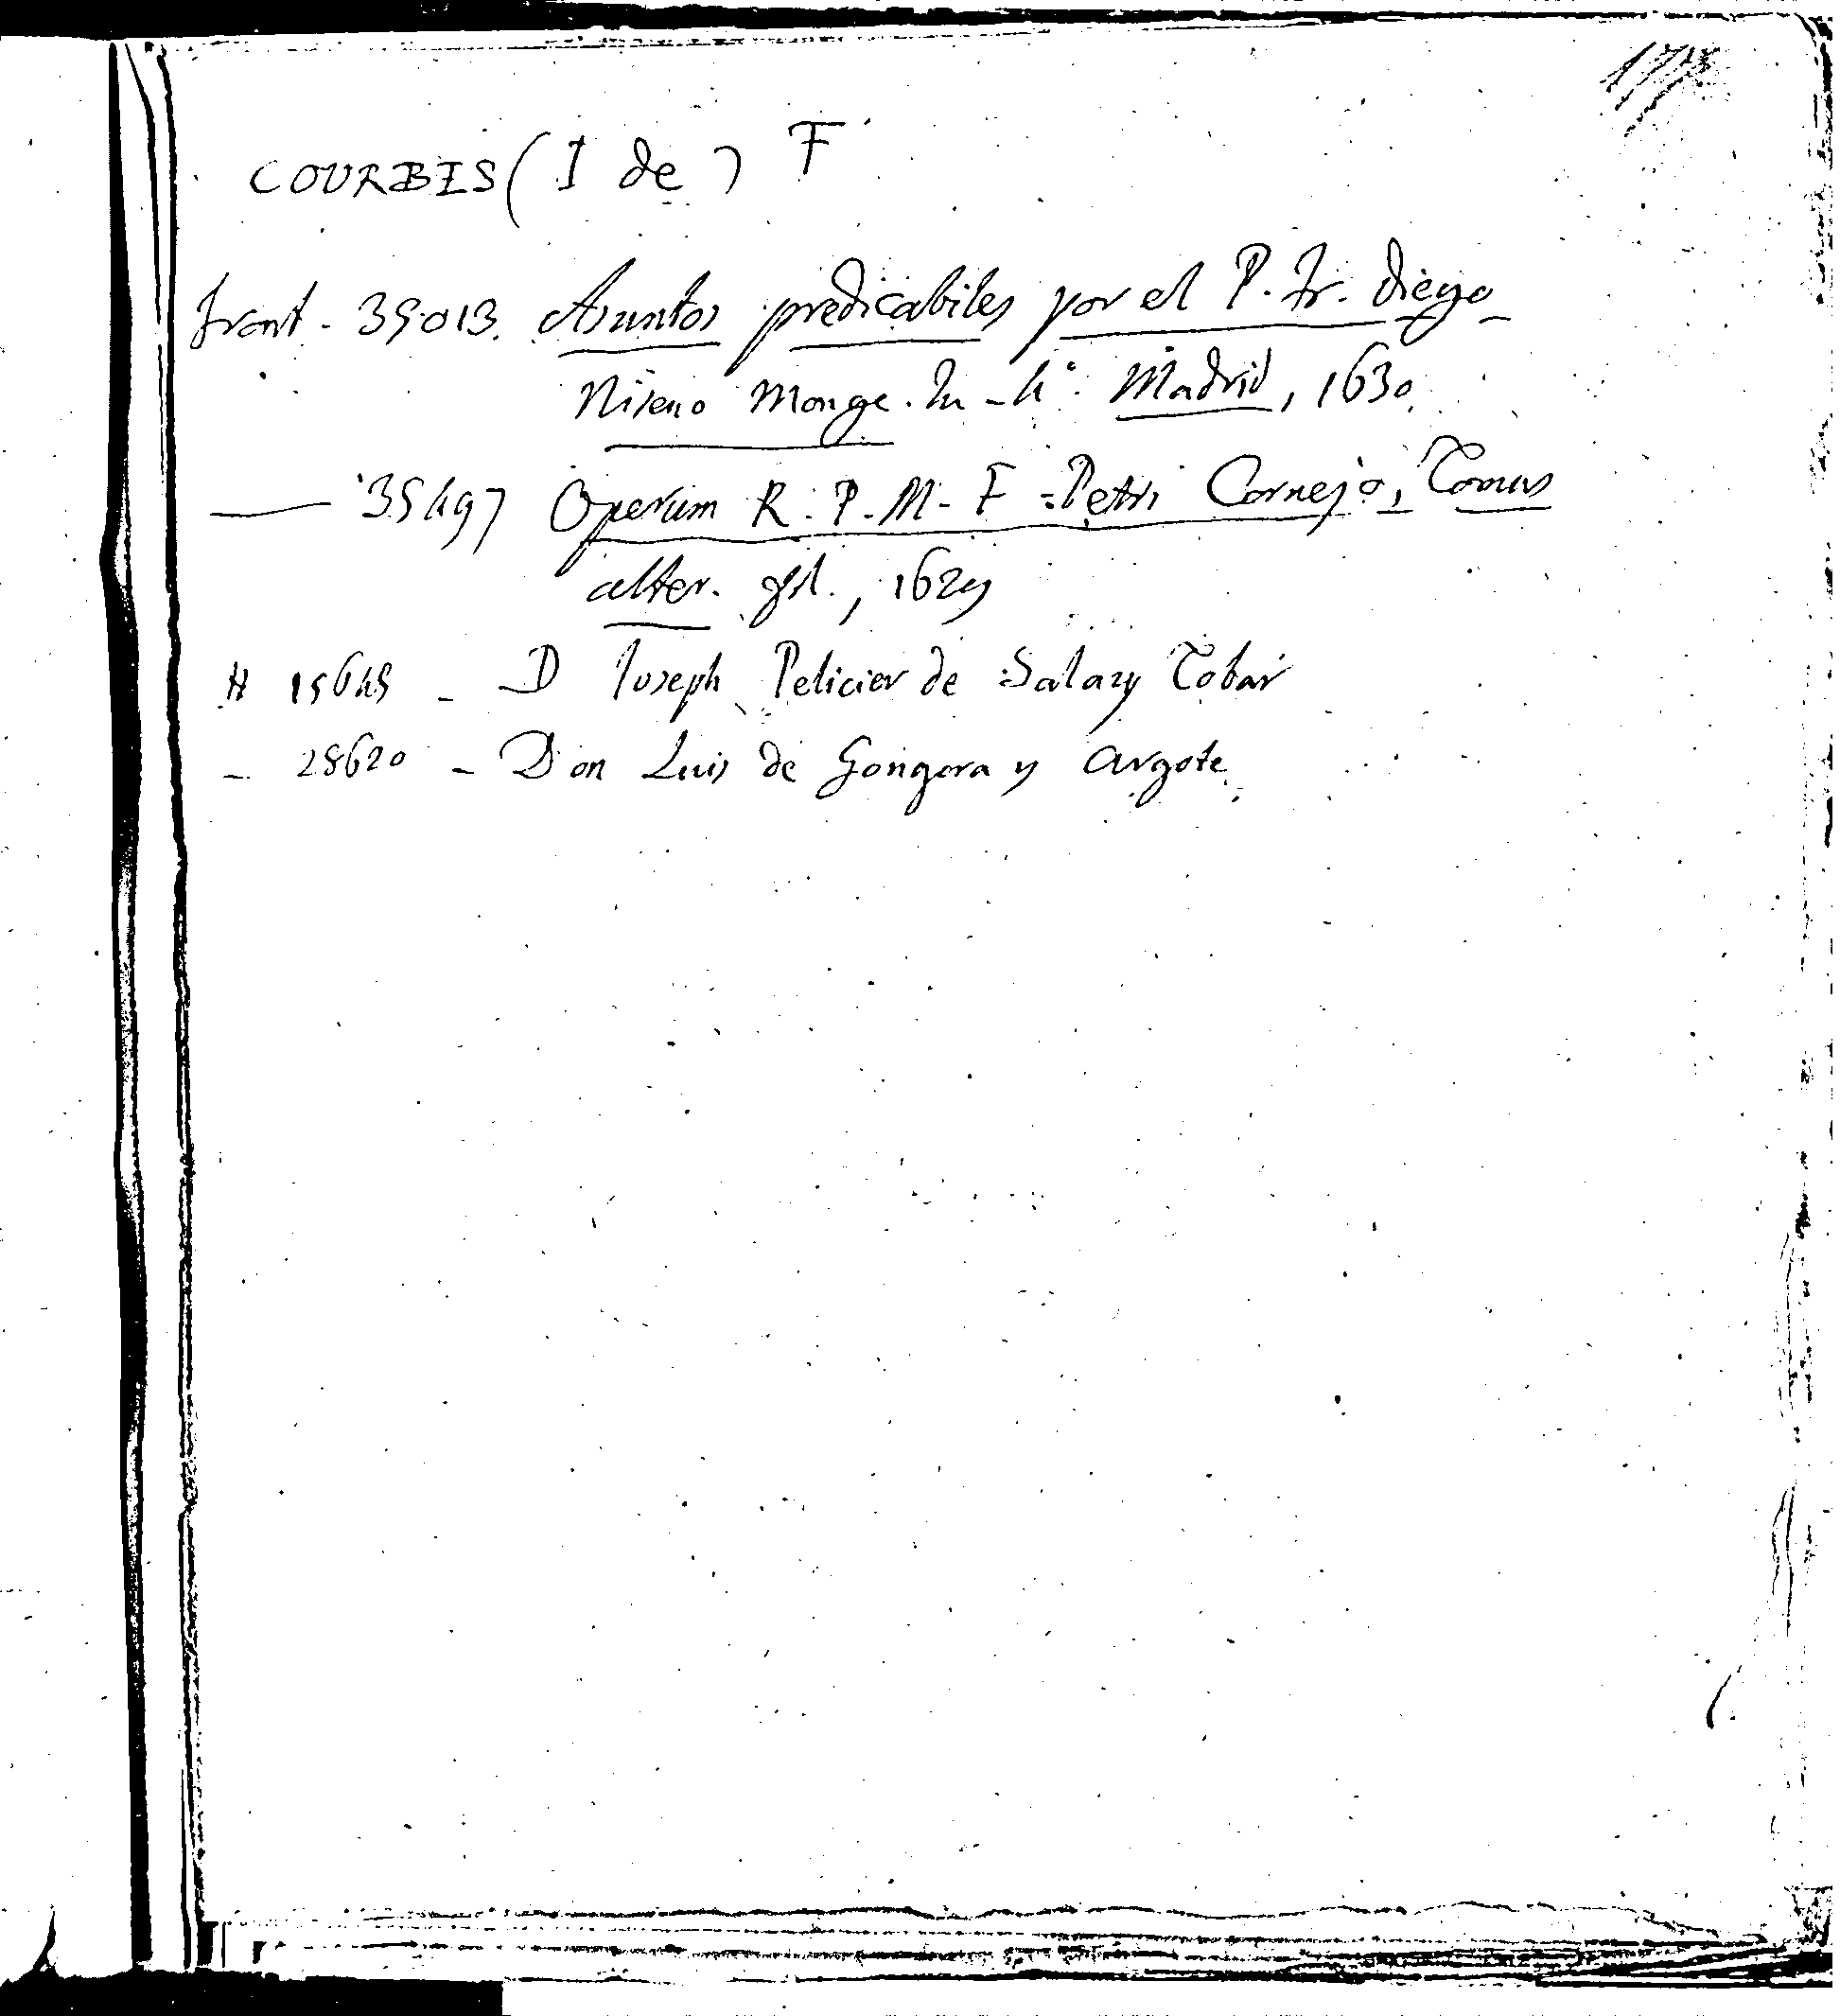 COURBES (I de) F
front - 35013. Asuntos predicabiles por el P. Fr. Diego
Niseno Monge. In-4°. Madrid, 1630.
— 35497 Operum R. P. M. F. Petri Cornejo, Tomus
alter. fol., 1629
# 15645 - D Joseph Pelicier de Salazy Tobar
- 28620 - Don Luis de Gongora y Argote